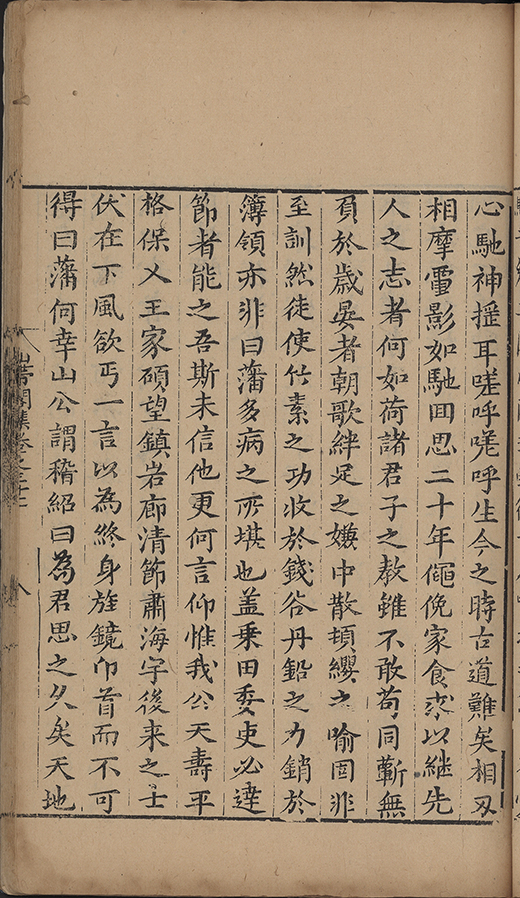 心馳神揺耳嗟呼嗟呼生今之時古道難矣相刄
相摩電影如馳囬思二十年僶俛家食求以継先
人之志者何如荷諸君子之教雖不敢茍同蘄無
負於歳晏者朝歌絆足之嫌中散頓纓之喻固非
至訓然徒使竹素之功收於錢谷丹鉛之力銷於
簿領亦非曰藩多病之所堪也盖乗田委吏必達
節者能之吾斯未信他更何言仰惟我公天壽平
格保乂王家碩望鎮岩廊清節肅海宇後来之士
伏在下風欲丐一言以為終身旌鏡卬首而不可
得曰藩何幸山公謂嵇紹曰為君思之久矣天地
山帶閣集卷之三十 八